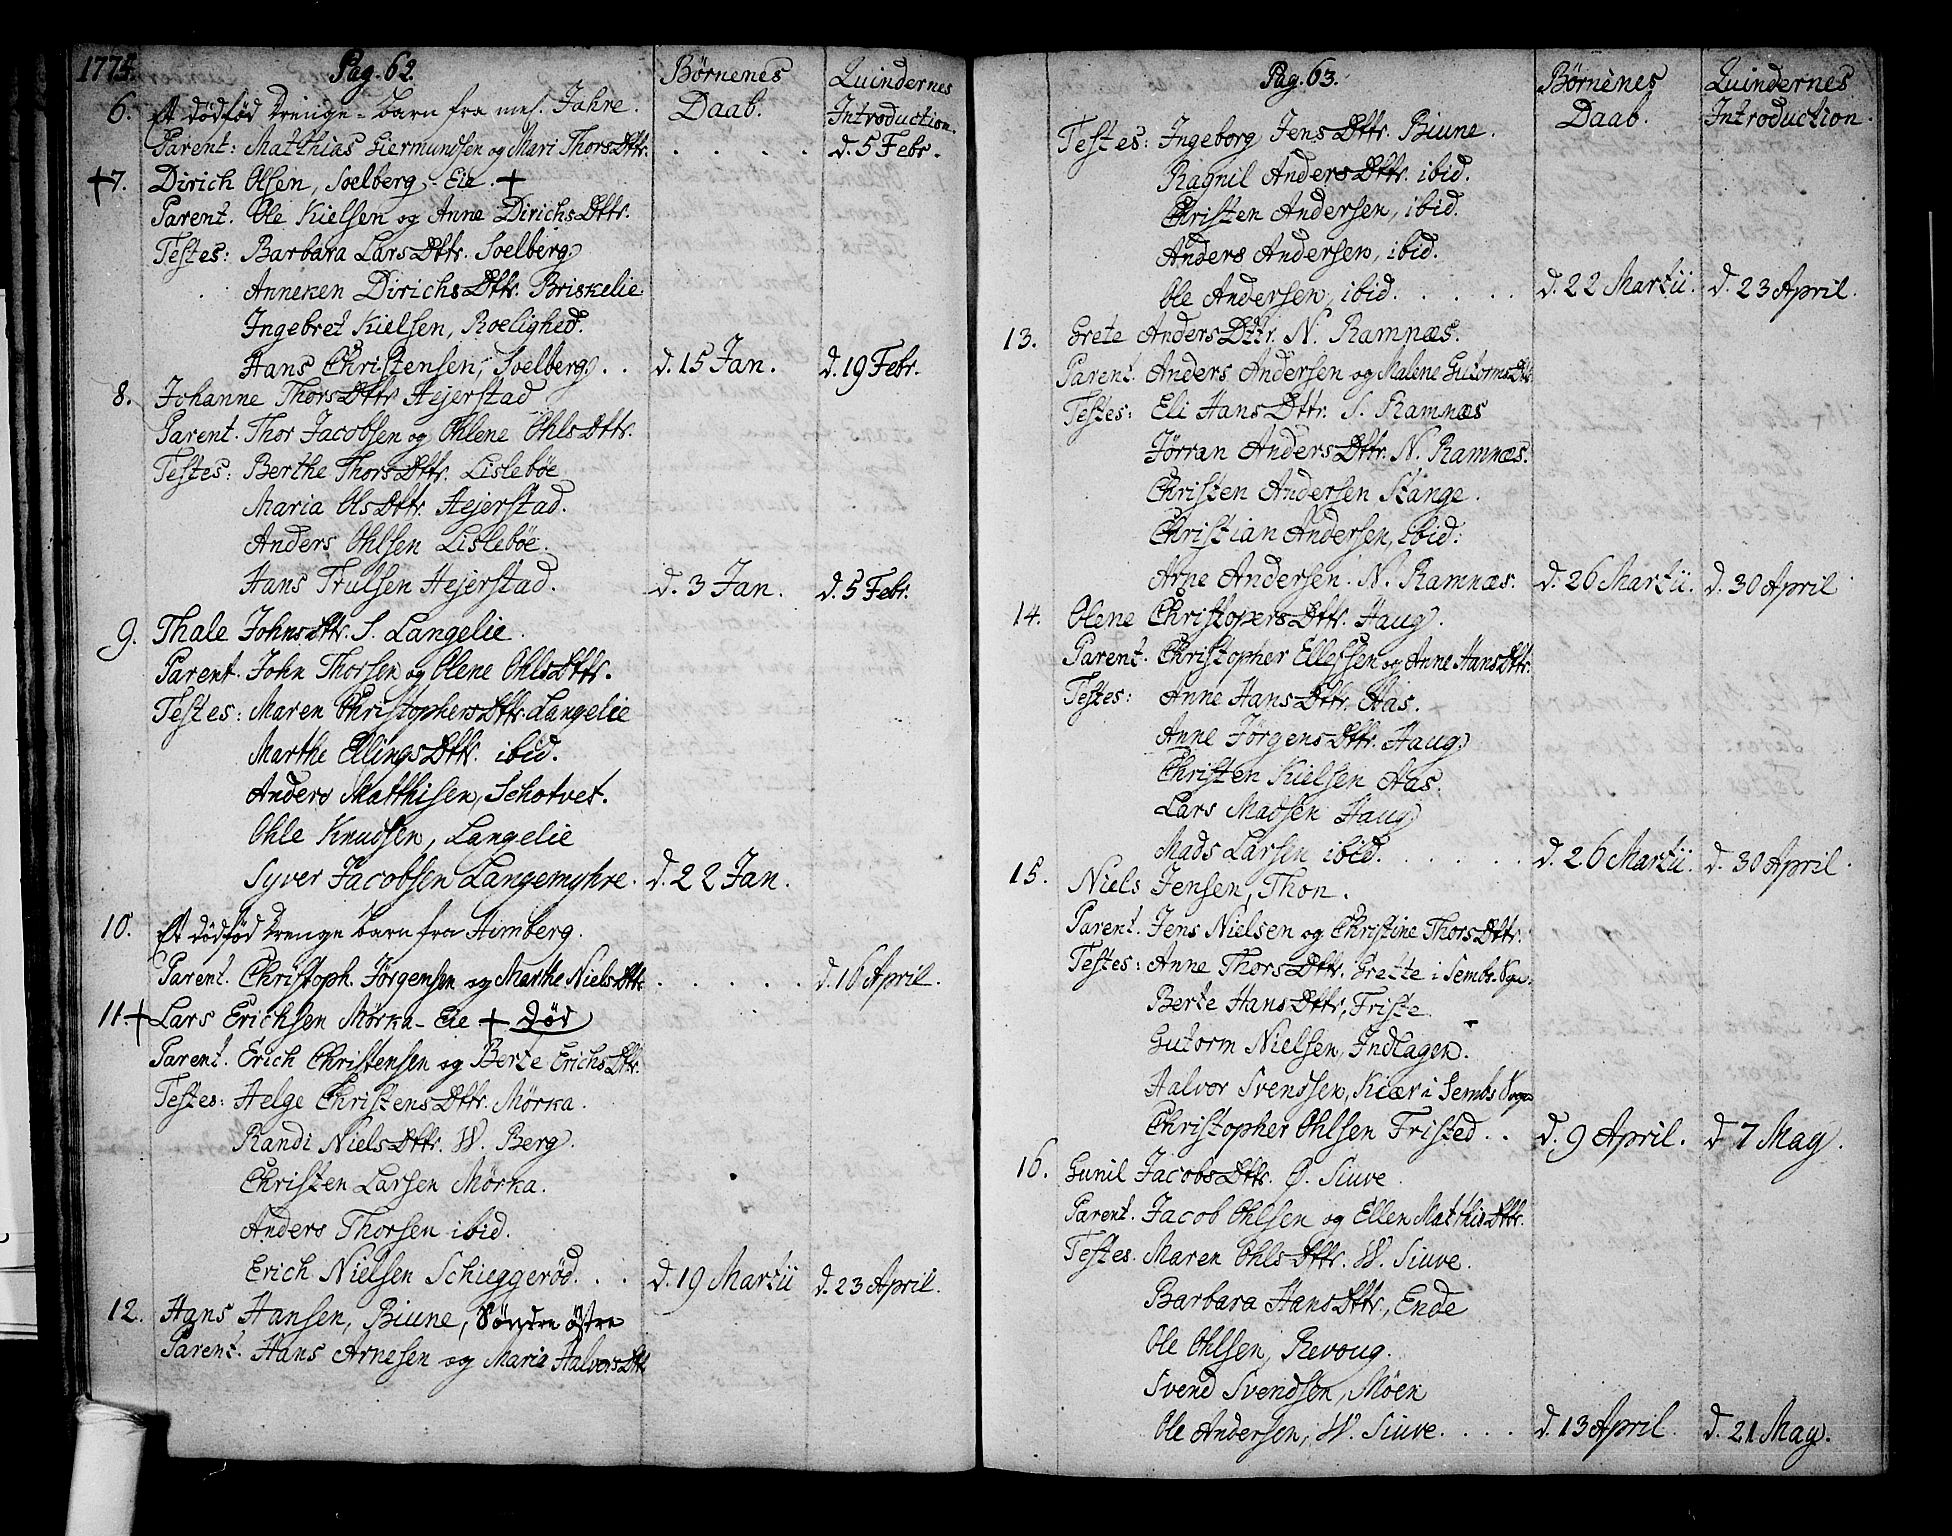 1775. Pag. 62. Børnenes Daab. Quindernes Introduction.
6. Et dødfød drenge-barn fra mel. Jahre.
Parent: Matthias Giermundsen og Mari ThorsDttr. . . . . d. 5 Febr.
+7. Dirich Olsen, Soelberg-Eie. +
Parent. Ole Kielsen og Anne DirichsDttr.
Testes: Barbara LarsDttr. Soelberg
Anneken DirichsDttr. Briskelie
Ingebret Kielsen, Roelighed.
Hans Christensen, Soelberg . . d. 15 Jan. d. 19 Febr.
8. Johanne ThorsDttr Hejerstad
Parent. Thor Jacobsen og Ohlene OhlsDttr.
Testes: Berthe ThorsDttr. Lislebøe
Maria OlsDttr. Hejerstad.
Anders Ohlsen Lislebøe.
Hans Trulsen Hejerstad. d. 3 Jan. d. 5 Febr.
9. Thale JohnsDttr. S. Langelie.
Parent. John Thorsen og Olene OhlsDttr.
Testes: Maren ChristophersDttr. Langelie
Marthe EllingsDttr. ibid.
Anders Matthisen, Schotvet.
Ohle Knudsen, Langelie
Syver Jacobsen Langemyhre. d. 22 Jan.
10. Et dødfød drenge barn fra Himberg.
Parent. Christoph. Jørgensen og Marthe NielsDttr. . . . . . d. 16 April.
11. + Lars Erichsen Mørka-Eie + død
Parent. Erich Christensen og Berte ErichsDttr.
Testes: Helge ChristensDttr. Mørka.
Randi NielsDttr. W. Berg.
Christen Larsen Mørka.
Anders Thorsen ibid.
Erich Nielsen Schieggerød. . . d. 19 Martii d. 23 April.
12. Hans Hansen, Biune, Søndre østre
Parent. Hans Arnesen og Maria HalvorsDttr.
Pag. 63. Børnenes Daab. Quindernes Introduction.
Testes: Ingeborg JensDttr. Biune.
Ragnil AndersDttr. ibid.
Christen Andersen, ibid.
Anders Andersen, ibid.
Ole Andersen, ibid. . . . . d. 22 Martii. d. 23 April.
13. Grete AndersDttr. N. Ramnæs.
Parent. Anders Andersen og Malene GutormsDtr.
Testes: Eli HansDttr. S. Ramnæs
Jørran AndersDttr. N. Ramnæs.
Christen Andersen Stange.
Christian Andersen, ibid:
Arne Andersen. N. Ramnæs. d. 26 Martii. d. 30 April
14. Olene ChristopersDttr. Haug.
Parent. Christopher Ellefsen og Anne HansDttr.
Testes: Anne HansDttr. Aas.
Anne JørgensDttr. Haug.
Christen Kielsen Aas.
Lars Madsen Haug
Mads Larsen ibid. . . . . . d. 26 Martii. d. 30 April.
15. Niels Jensen, Thon.
Parent. Jens Nielsen og Christine ThorsDttr.
Testes: Anne ThorsDttr. Grette i Sembs-Sogn.
Berte HansDttr, Friste
Gutorm Nielsen, Indlagen.
Halvor Svendsen, Kiær i Sembs Sogn
Christopher Ohlsen Fristed. . d. 9 April. d. 7 May.
16. Gunil JacobsDttr. Ø. Siuve.
Parent. Jacob Ohlsen og Ellen MatthisDttr.
Testes. Maren OhlsDttr. W. Siuve.
Barbara HansDttr., Ende
Ole Ohlsen, Revoug.
Svend Svendsen, Møen
Ole Andersen, W. Siuve. . . . d. 13 April. d. 21 May.